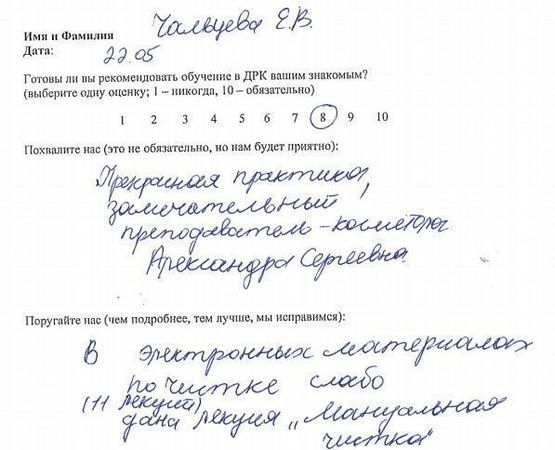 Имя и Фамилия Чальцева Е.В.
Дата: 22.05
Готовы ли вы рекомендовать обучение в ДРК вашим знакомым?
(выберите одну оценку; 1 – никогда, 10 – обязательно)
1 2 3 4 5 6 7 8 9 10
Похвалите нас (это не обязательно, но нам будет приятно):
Прекрасная практика,
замечательный
преподаватель - косметолог
Александра Сергеевна.
Поругайте нас (чем подробнее, тем лучше, мы исправимся):
В электронных материалах
по чистке слабо
(11 лекций)
дана лекция „Мануальная
чистка"